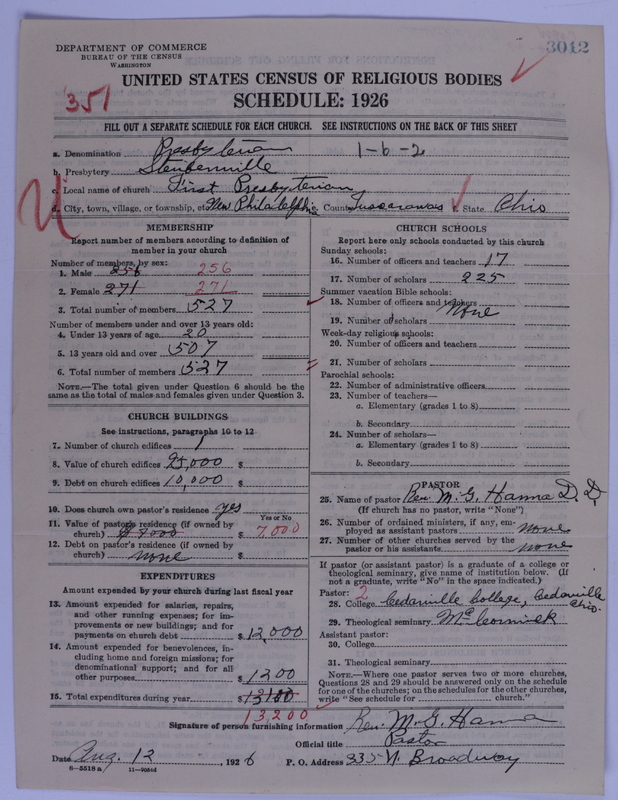 DEPARTMENT OF COMMERCE
BUREAU OF THE CENSUS
WASHINGTON
3012
UNITED STATES CENSUS OF RELIGIOUS BODIES
351
SCHEDULE: 1926
FILL OUT A SEPARATE SCHEDULE FOR EACH CHURCH. SEE INSTRUCTIONS ON THE BACK OF THIS SHEET
a. Denomination Presbyterian 1-6-2
b. Presbytery Steubenville
c. Local name of church First Presbyterian
d. City, town, village, or township, etc. New Philadelphia County Tuscarawas f. State Ohio
MEMBERSHIP
Report number of members according to definition of
member in your church
Number of members, by sex:
1. Male 256 256
2. Female 271 271
3. Total number of members 527
Number of members under and over 13 years old:
4. Under 13 years of age 20
5. 13 years old and over 507
6. Total number of members 527
NOTE.—The total given under Question 6 should be the
same as the total of males and females given under Question 3.
CHURCH BUILDINGS
See instructions, paragraphs 10 to 12
7. Number of church edifices 1
8. Value of church edifices 95,000 $
9. Debt on church edifices 10,000 $
10. Does church own pastor's residence yes
Yes or No
11. Value of pastor's residence (if owned by
church) $7000 $ 7,000
12. Debt on pastor's residence (if owned by
church) none $
EXPENDITURES
Amount expended by your church during last fiscal year
13. Amount expended for salaries, repairs,
and other running expenses; for im-
provements or new buildings; and for
payments on church debt $ 12,000
14. Amount expended for benevolences, in-
cluding home and foreign missions; for
denominational support; and for all
other purposes $ 1200
15. Total expenditures during year $
13,200
CHURCH SCHOOLS
Report here only schools conducted by this church
Sunday schools:
16. Number of officers and teachers 17
17. Number of scholars 225
Summer vacation Bible schools:
18. Number of officers and teachers
None
19. Number of scholars
Week-day religious schools:
20. Number of officers and teachers
21. Number of scholars
Parochial schools:
22. Number of administrative officers
23. Number of teachers—
a. Elementary (grades 1 to 8)
b. Secondary
24. Number of scholars—
a. Elementary (grades 1 to 8)
b. Secondary
PASTOR
25. Name of pastor Rev. M. G. Hanna D. D.
(If church has no pastor, write "None")
26. Number of ordained ministers, if any, em-
ployed as assistant pastors none
27. Number of other churches served by the
pastor or his assistants none
If pastor (or assistant pastor) is a graduate of a college or
theological seminary, give name of institution below. (If
not a graduate, write "No" in the space indicated.)
Pastor: 2
28. College Cedarville College, Cedarville
Ohio.
29. Theological seminary McCormick
Assistant pastor:
30. College
31. Theological seminary
NOTE.—Where one pastor serves two or more churches,
Questions 28 and 29 should be answered only on the schedule
for one of the churches; on the schedules for the other churches,
write "See schedule for church."
Signature of person furnishing information Rev. M. G. Hanna
Official title Pastor
Date Aug. 12, 1926 P. O. Address 335 N. Broadway
8—5518 a 11—9064d